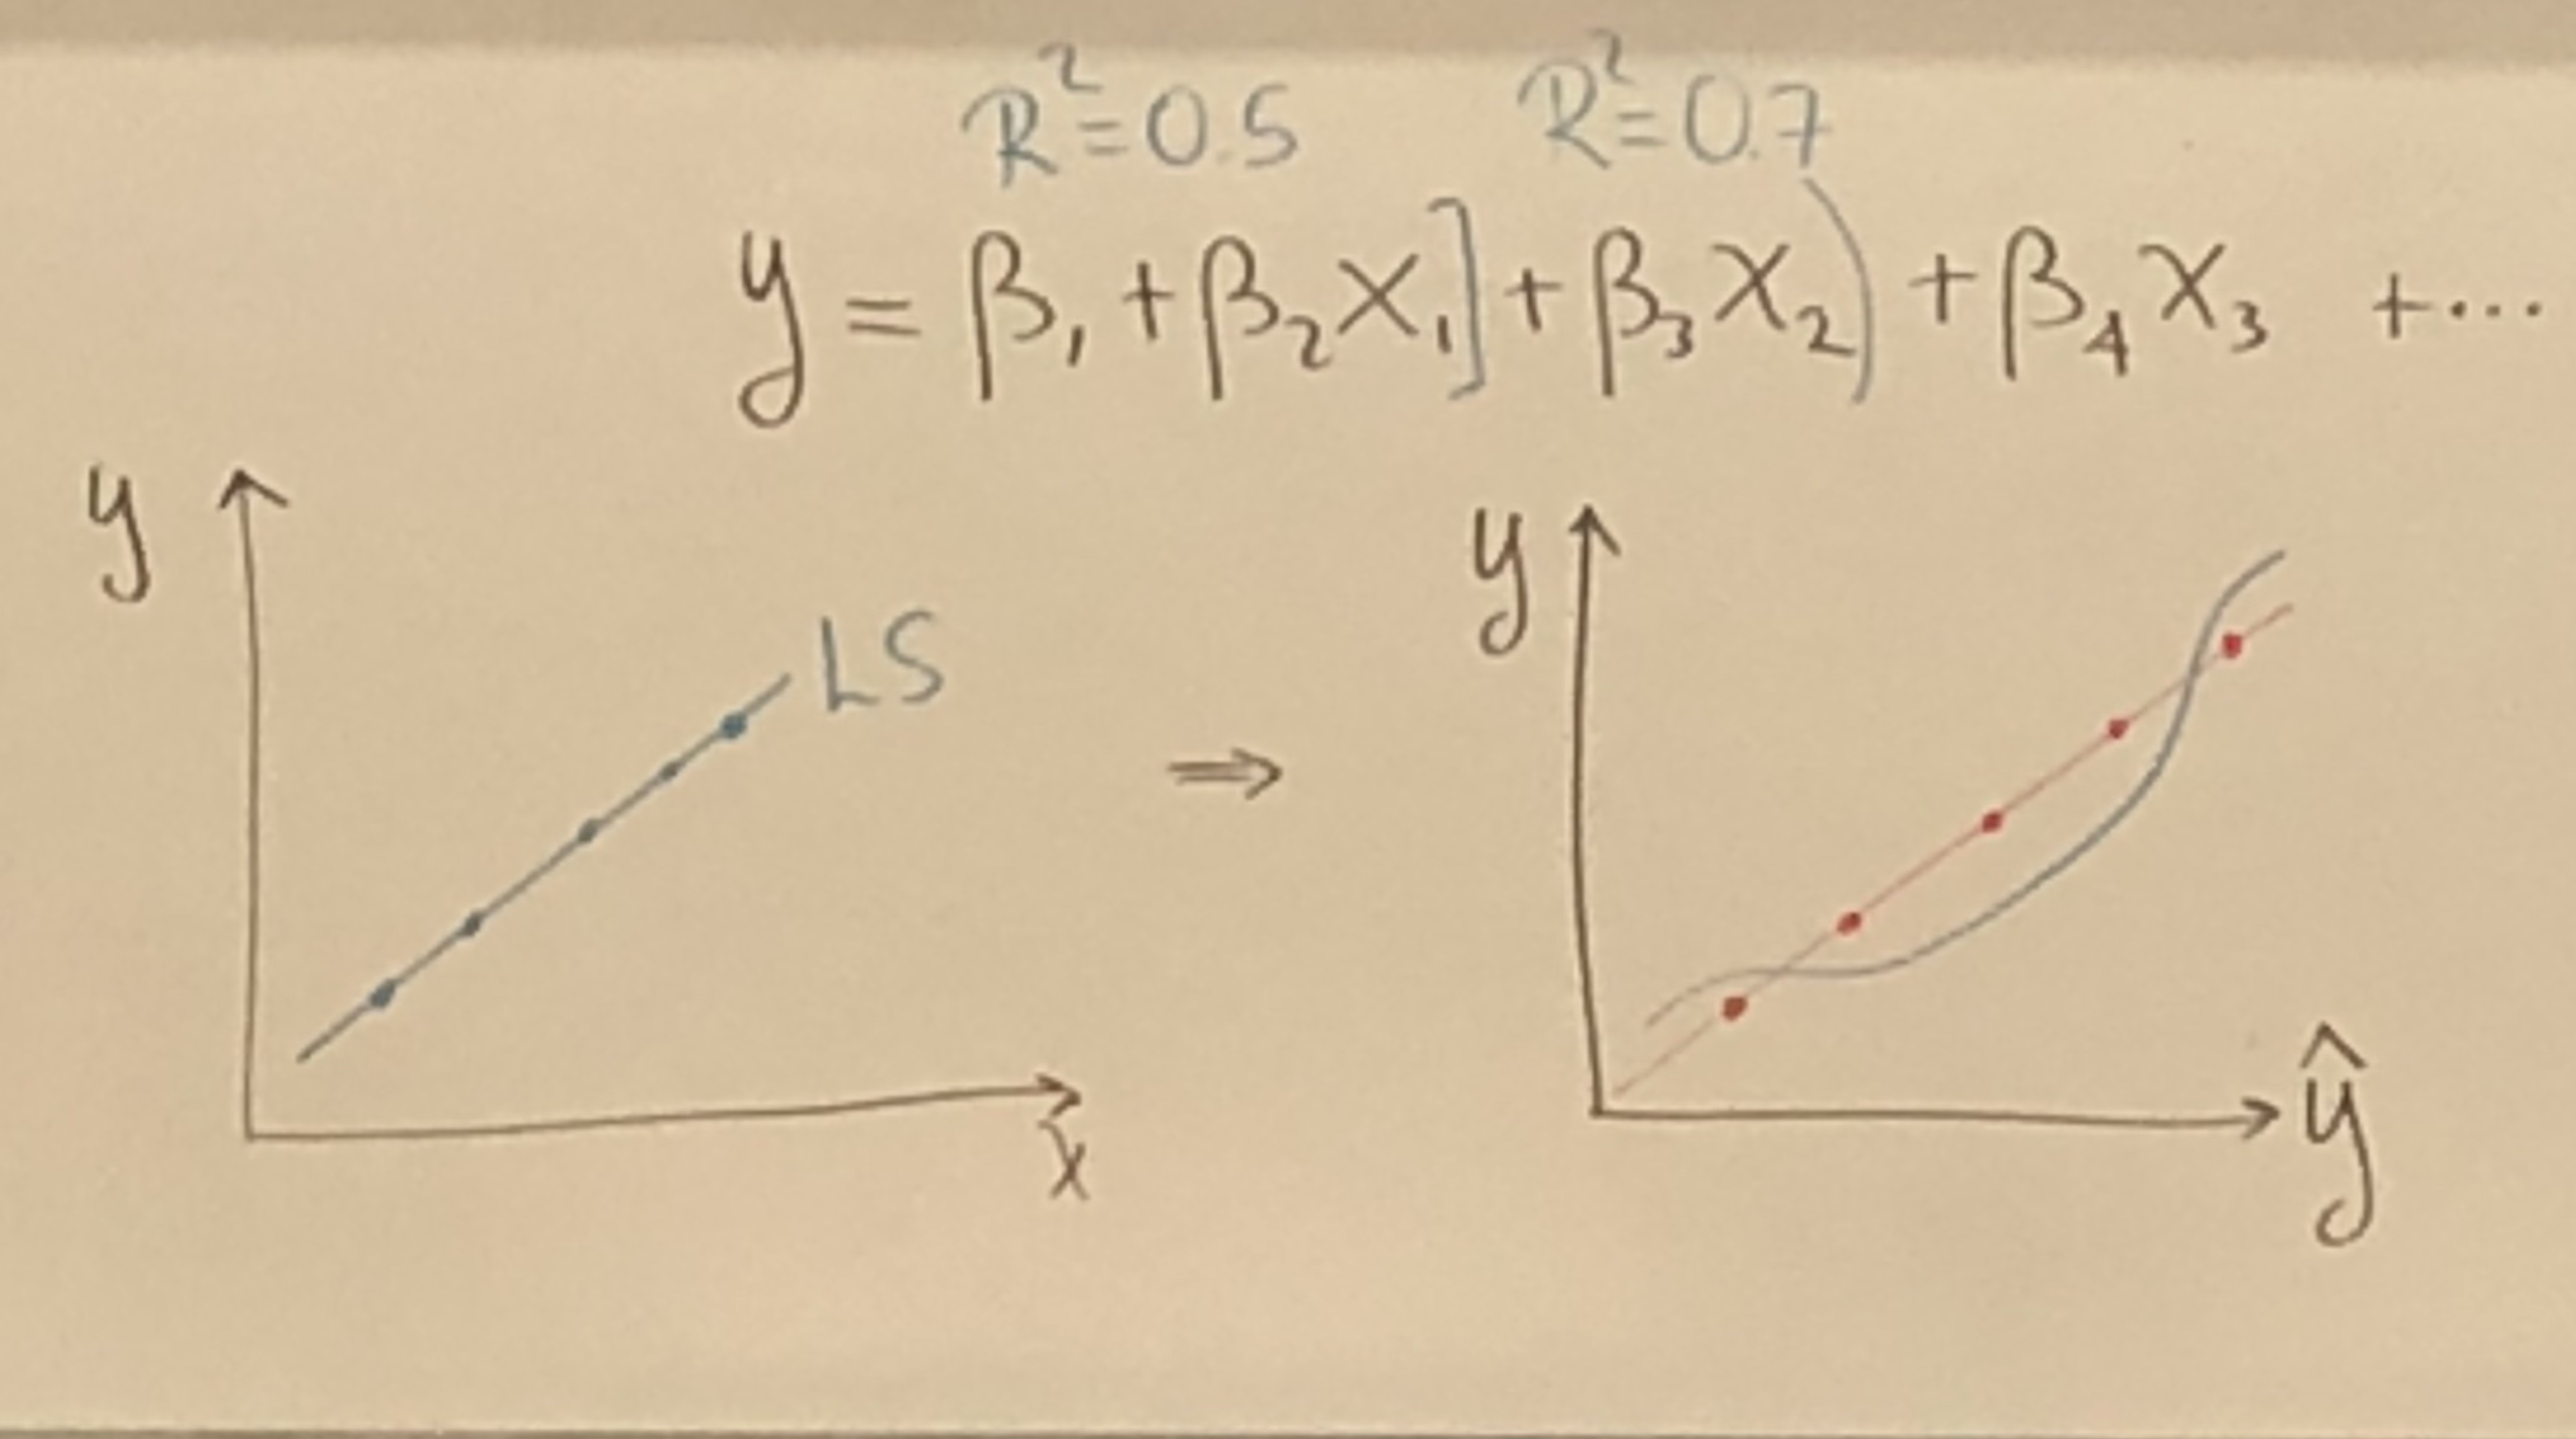 R²=0.5 R²=0.7
y = β₁ + β₂x₁] + β₃x₂) + β₄x₃ + ...
y
LS
x
⇒
y
ŷ